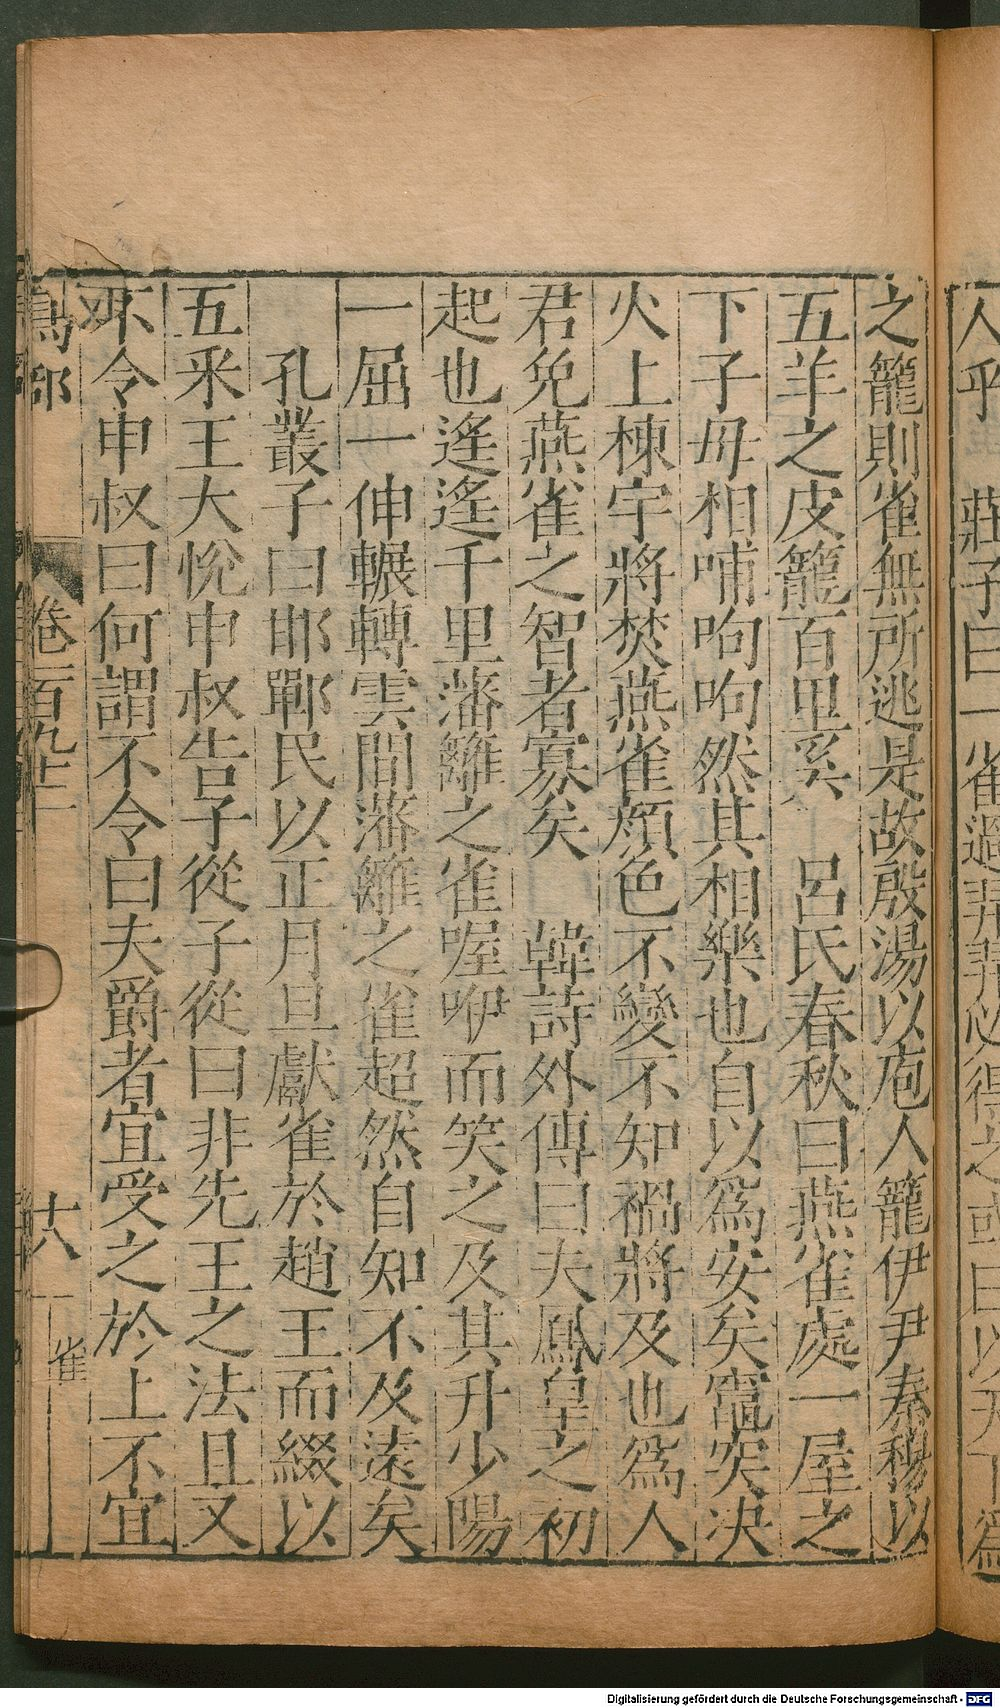 人乎　莊子曰一雀過羿羿必得之或曰以天下爲
之籠則雀無所逃是故殷湯以庖人籠伊尹秦穆以
五羊之皮籠百里奚　呂氏春秋曰燕雀處一屋之
下子母相哺呴呴然其相樂也自以爲安矣竈突決
火上棟宇將焚燕雀顏色不變不知禍將及也爲人
君免燕雀之智者寡矣　韓詩外傳曰夫鳳皇之初
起也遙遙千里藩籬之雀喔咿而笑之及其升少陽
一屈一伸輾轉雲間藩籬之雀超然自知不及遠矣
孔叢子曰邯鄲民以正月旦獻雀於趙王而綴以
五采王大悅申叔告子從子從曰非先王之法且又
不令申叔曰何謂不令曰夫爵者宜受之於上不宜
鳥部　卷一百九十二　十八　雀
Digitalisierung gefördert durch die Deutsche Forschungsgemeinschaft - DFG